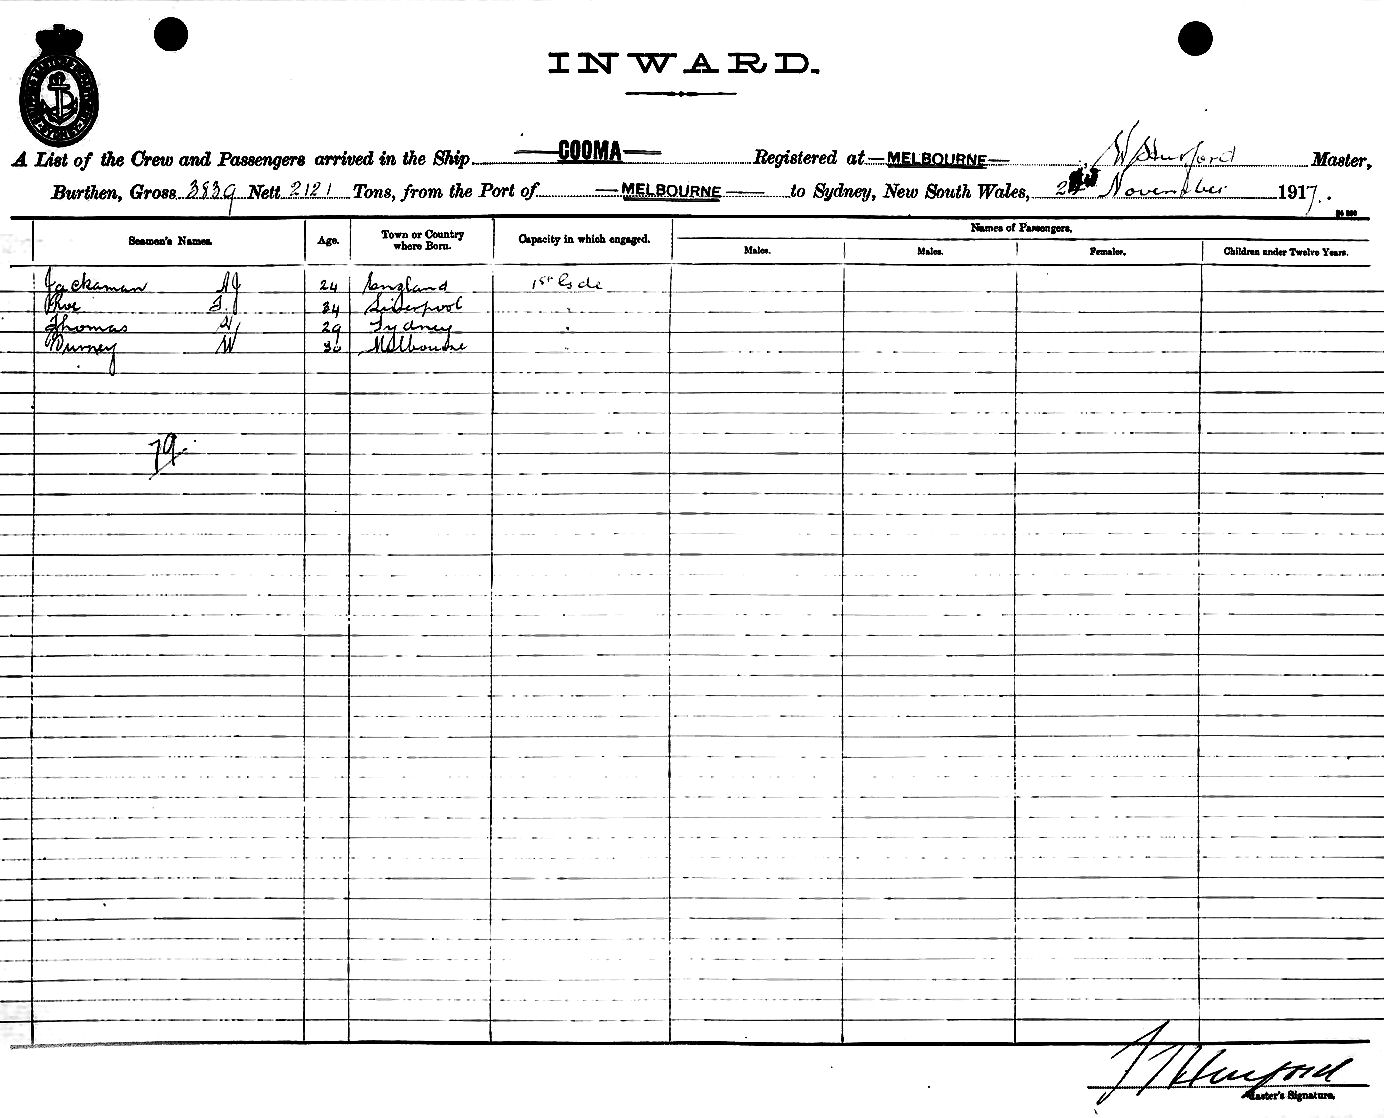 INWARD.
A List of the Crew and Passengers arrived in the Ship COOMA Registered at MELBOURNE Master,
Burthen, Gross 3839 Nett 2121 Tons, from the Port of MELBOURNE to Sydney, New South Wales, November 1917.
Names of Passengers.
Seamen's Names. Age. Town or Country where Born. Capacity in which engaged. Males. Males. Females. Children under Twelve Years.
Jackaman AJ 24 England 1st
34 Liverpool
Thomas 29 Sydney
W Melbourne
79
Master's Signature.